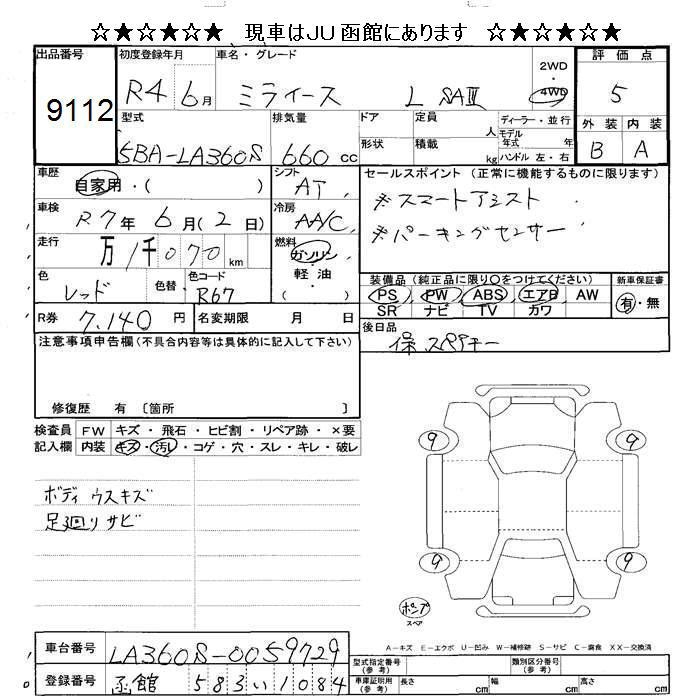 ☆★☆★☆★ 現車はJU函館にあります ☆★☆★☆★
出品番号 9112
初度登録年月 R4年6月
車名・グレード ミライース L SAⅢ
2WD・4WD
評価点 5
型式 5BA-LA360S
排気量 660 cc
ドア
形状
定員 人
積載 kg
ディーラー・並行
モデル年式 年
ハンドル 左・右
外装 B
内装 A
車歴 自家用・( )
シフト AT
車検 R7年6月(2日)
冷房 AA/C
走行 万1千070km
燃料 ガソリン
軽油・
( )
色 レッド
色替
色コード R67
R券 7,140円
名変期限 月 日
セールスポイント(正常に機能するものに限ります)
※スマートアシスト
※パーキングセンサー
装備品(純正品に限り○をつけてください)
PS PW ABS エアB AW
SR ナビ TV カワ
新車保証書
有・無
後日品
保 スペアキー
注意事項申告欄(不具合内容等は具体的に記入して下さい)
修復歴 有 [箇所 ]
検査員 FW キズ・飛石・ヒビ割・リペア跡・×要
記入欄 内装 キズ・汚レ・コゲ・穴・スレ・キレ・破レ
ボディ ウスキズ
足廻リサビ
9 9
9 9
ポンプ
スペア
A-キズ E-エクボ U-凹み W-補修跡 S-サビ C-腐食 XX-交換済
車台番号 LA360S-0059729
登録番号 函館 583 い 1084
型式指定番号(参考)
類別区分番号(参考)
車庫証明用(参考) 長さ cm 幅 cm 高さ cm